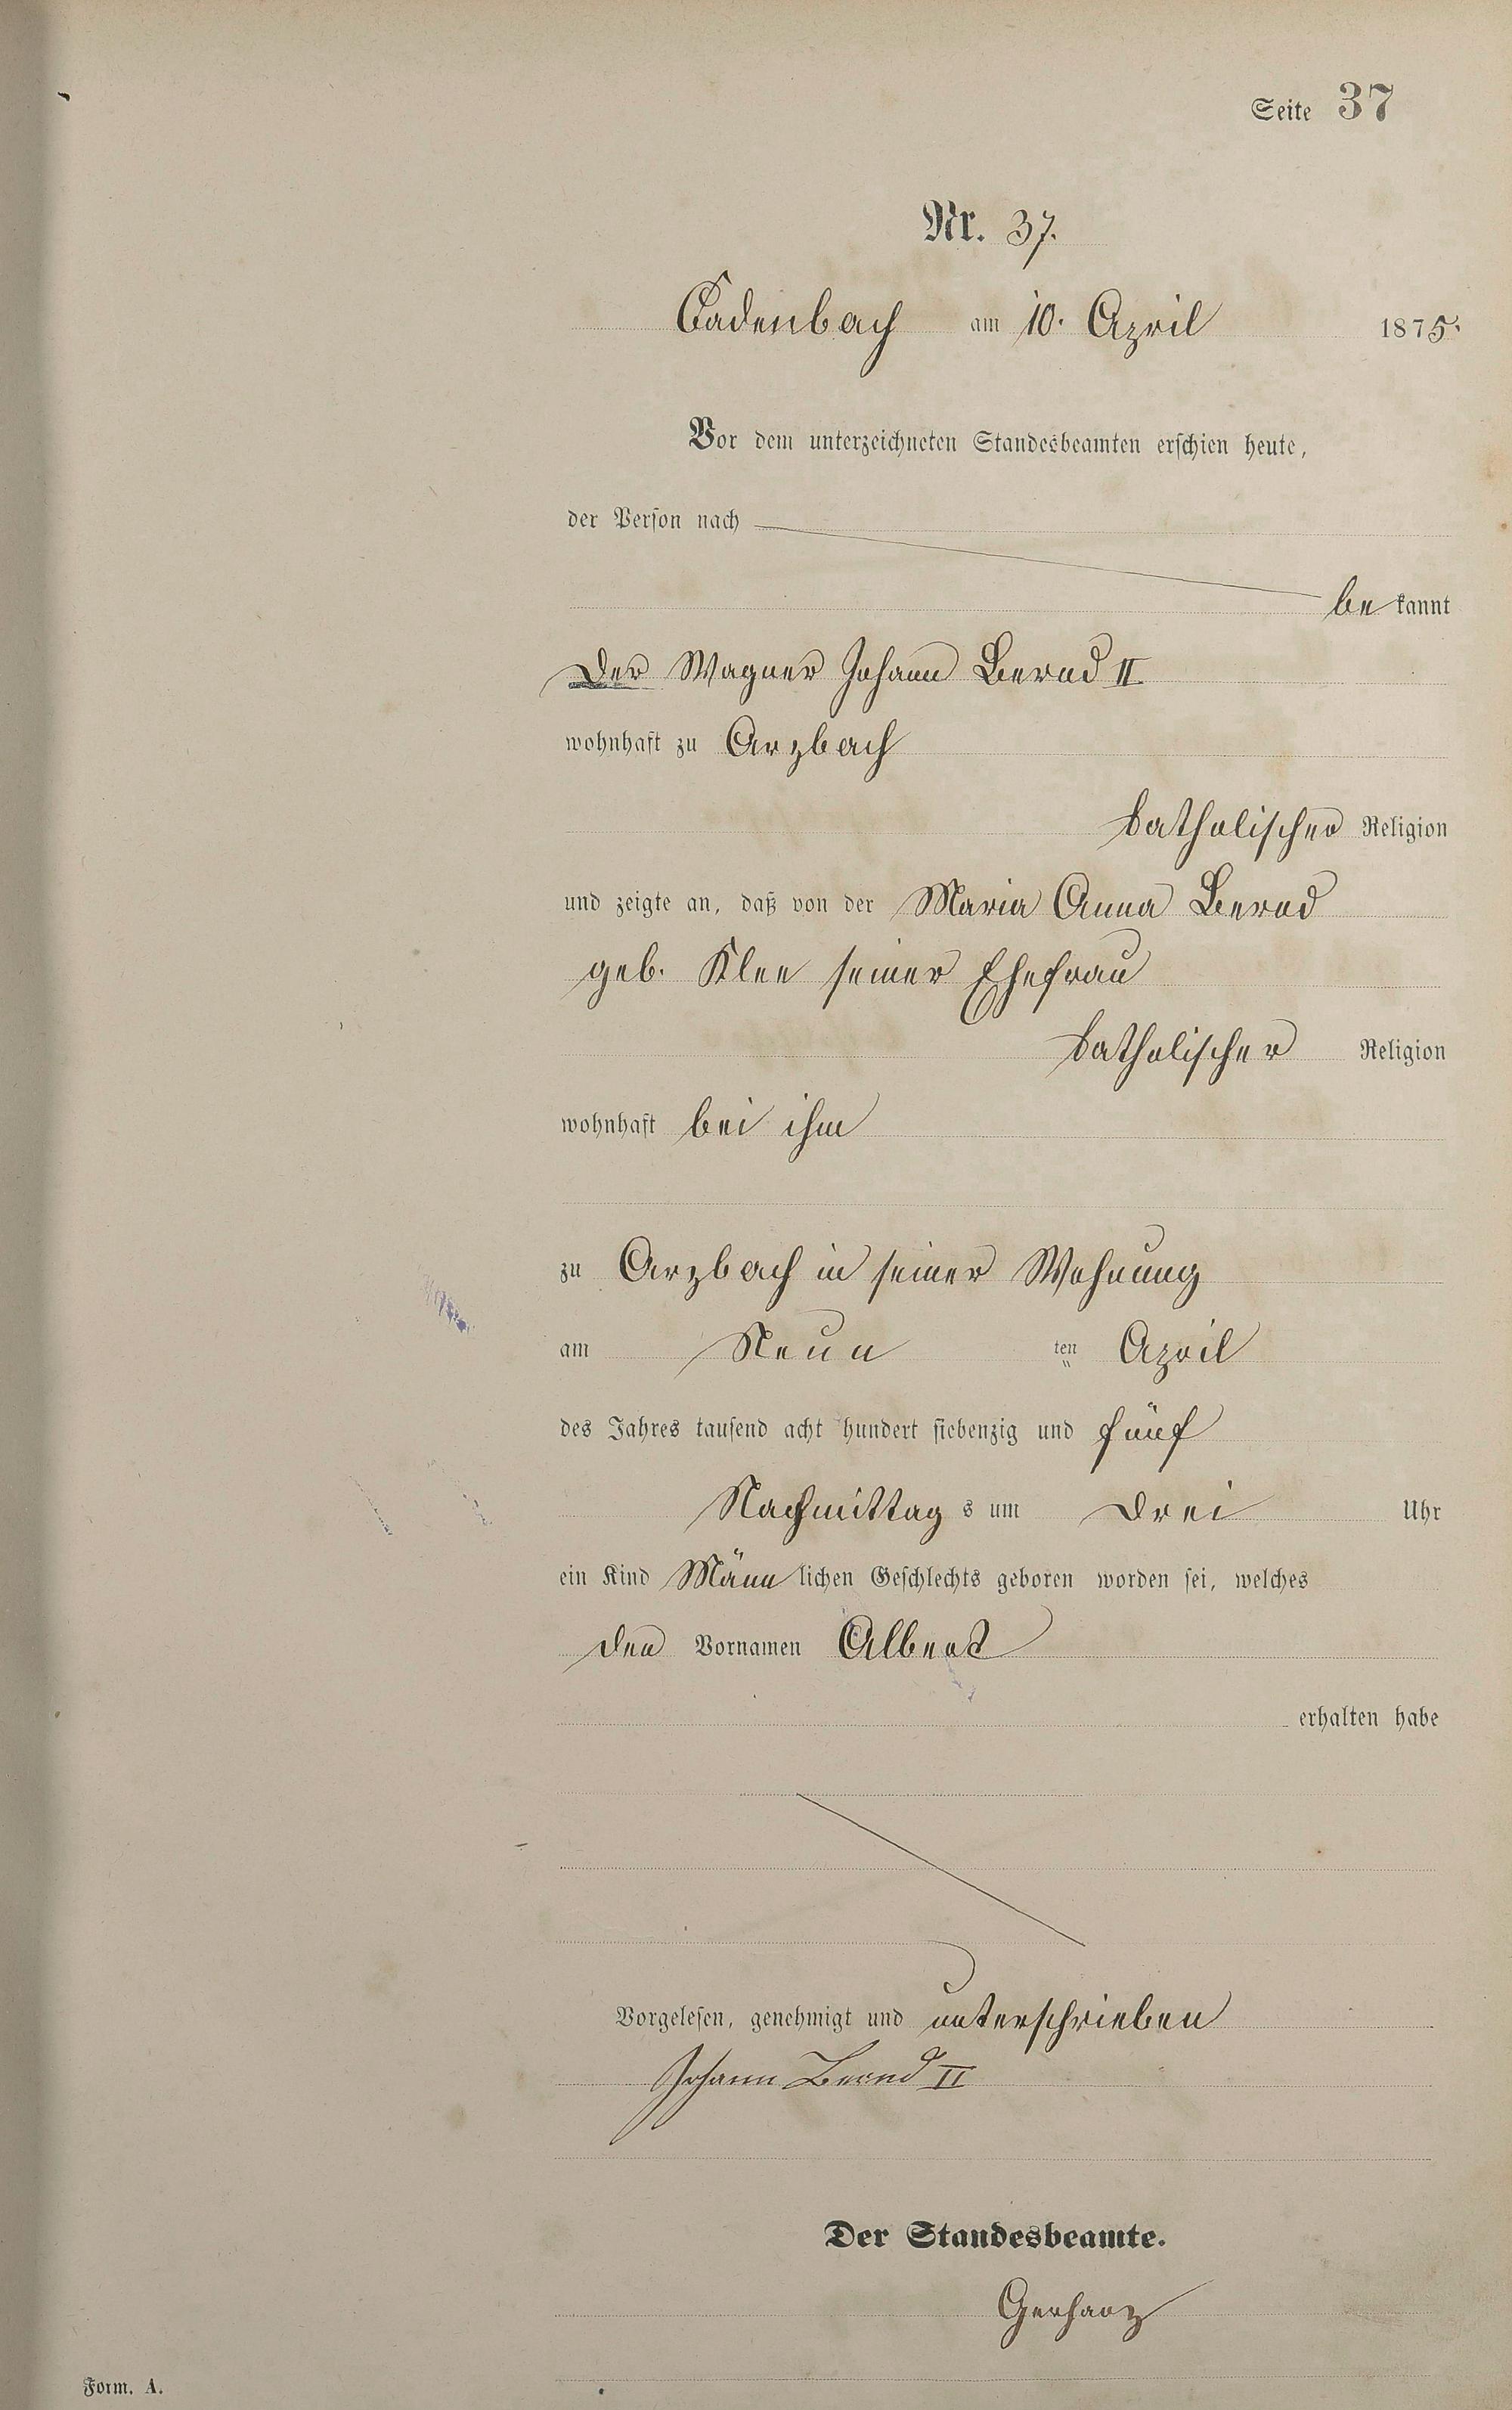 Seite 37
Nr. 37.
Cadenbach am 10. April 1875.
Vor dem unterzeichneten Standesbeamten erschien heute,
der Person nach
be kannt
Der Wagner Johann Bernd II
wohnhaft zu Arzbach
katholischer Religion
und zeigte an, daß von der Maria Anna Bernd
geb. Klee seiner Ehefrau
katholischer Religion
wohnhaft bei ihm
zu Arzbach in seiner Wohnung
am Neun ten April
des Jahres tausend acht hundert siebenzig und fünf
Nachmittag s um Drei Uhr
ein Kind Männ lichen Geschlechts geboren worden sei, welches
den Vornamen Albert
erhalten habe
Vorgelesen, genehmigt und unterschrieben
Johann Bernd II
Der Standesbeamte.
Gerharz
Form. A.